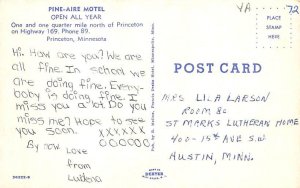 VA 72
PINE-AIRE MOTEL
OPEN ALL YEAR
One and one quarter mile north of Princeton
on Highway 169. Phone 89.
Princeton, Minnesota
Hi. How are you? We are
all fine. In school we
are doing fine. Every-
body is doing fine. I
miss you a lot. Do you
miss me? Hope to see
you soon. XXXXXX
OOOOOO
By now Love
from
POST CARD
PLACE
STAMP
HERE
MRS LILA LARSON
ROOM 80
ST MARKS LUTHERAN HOME
400-15th AVE S.W
AUSTIN, MINN.
DEXTER